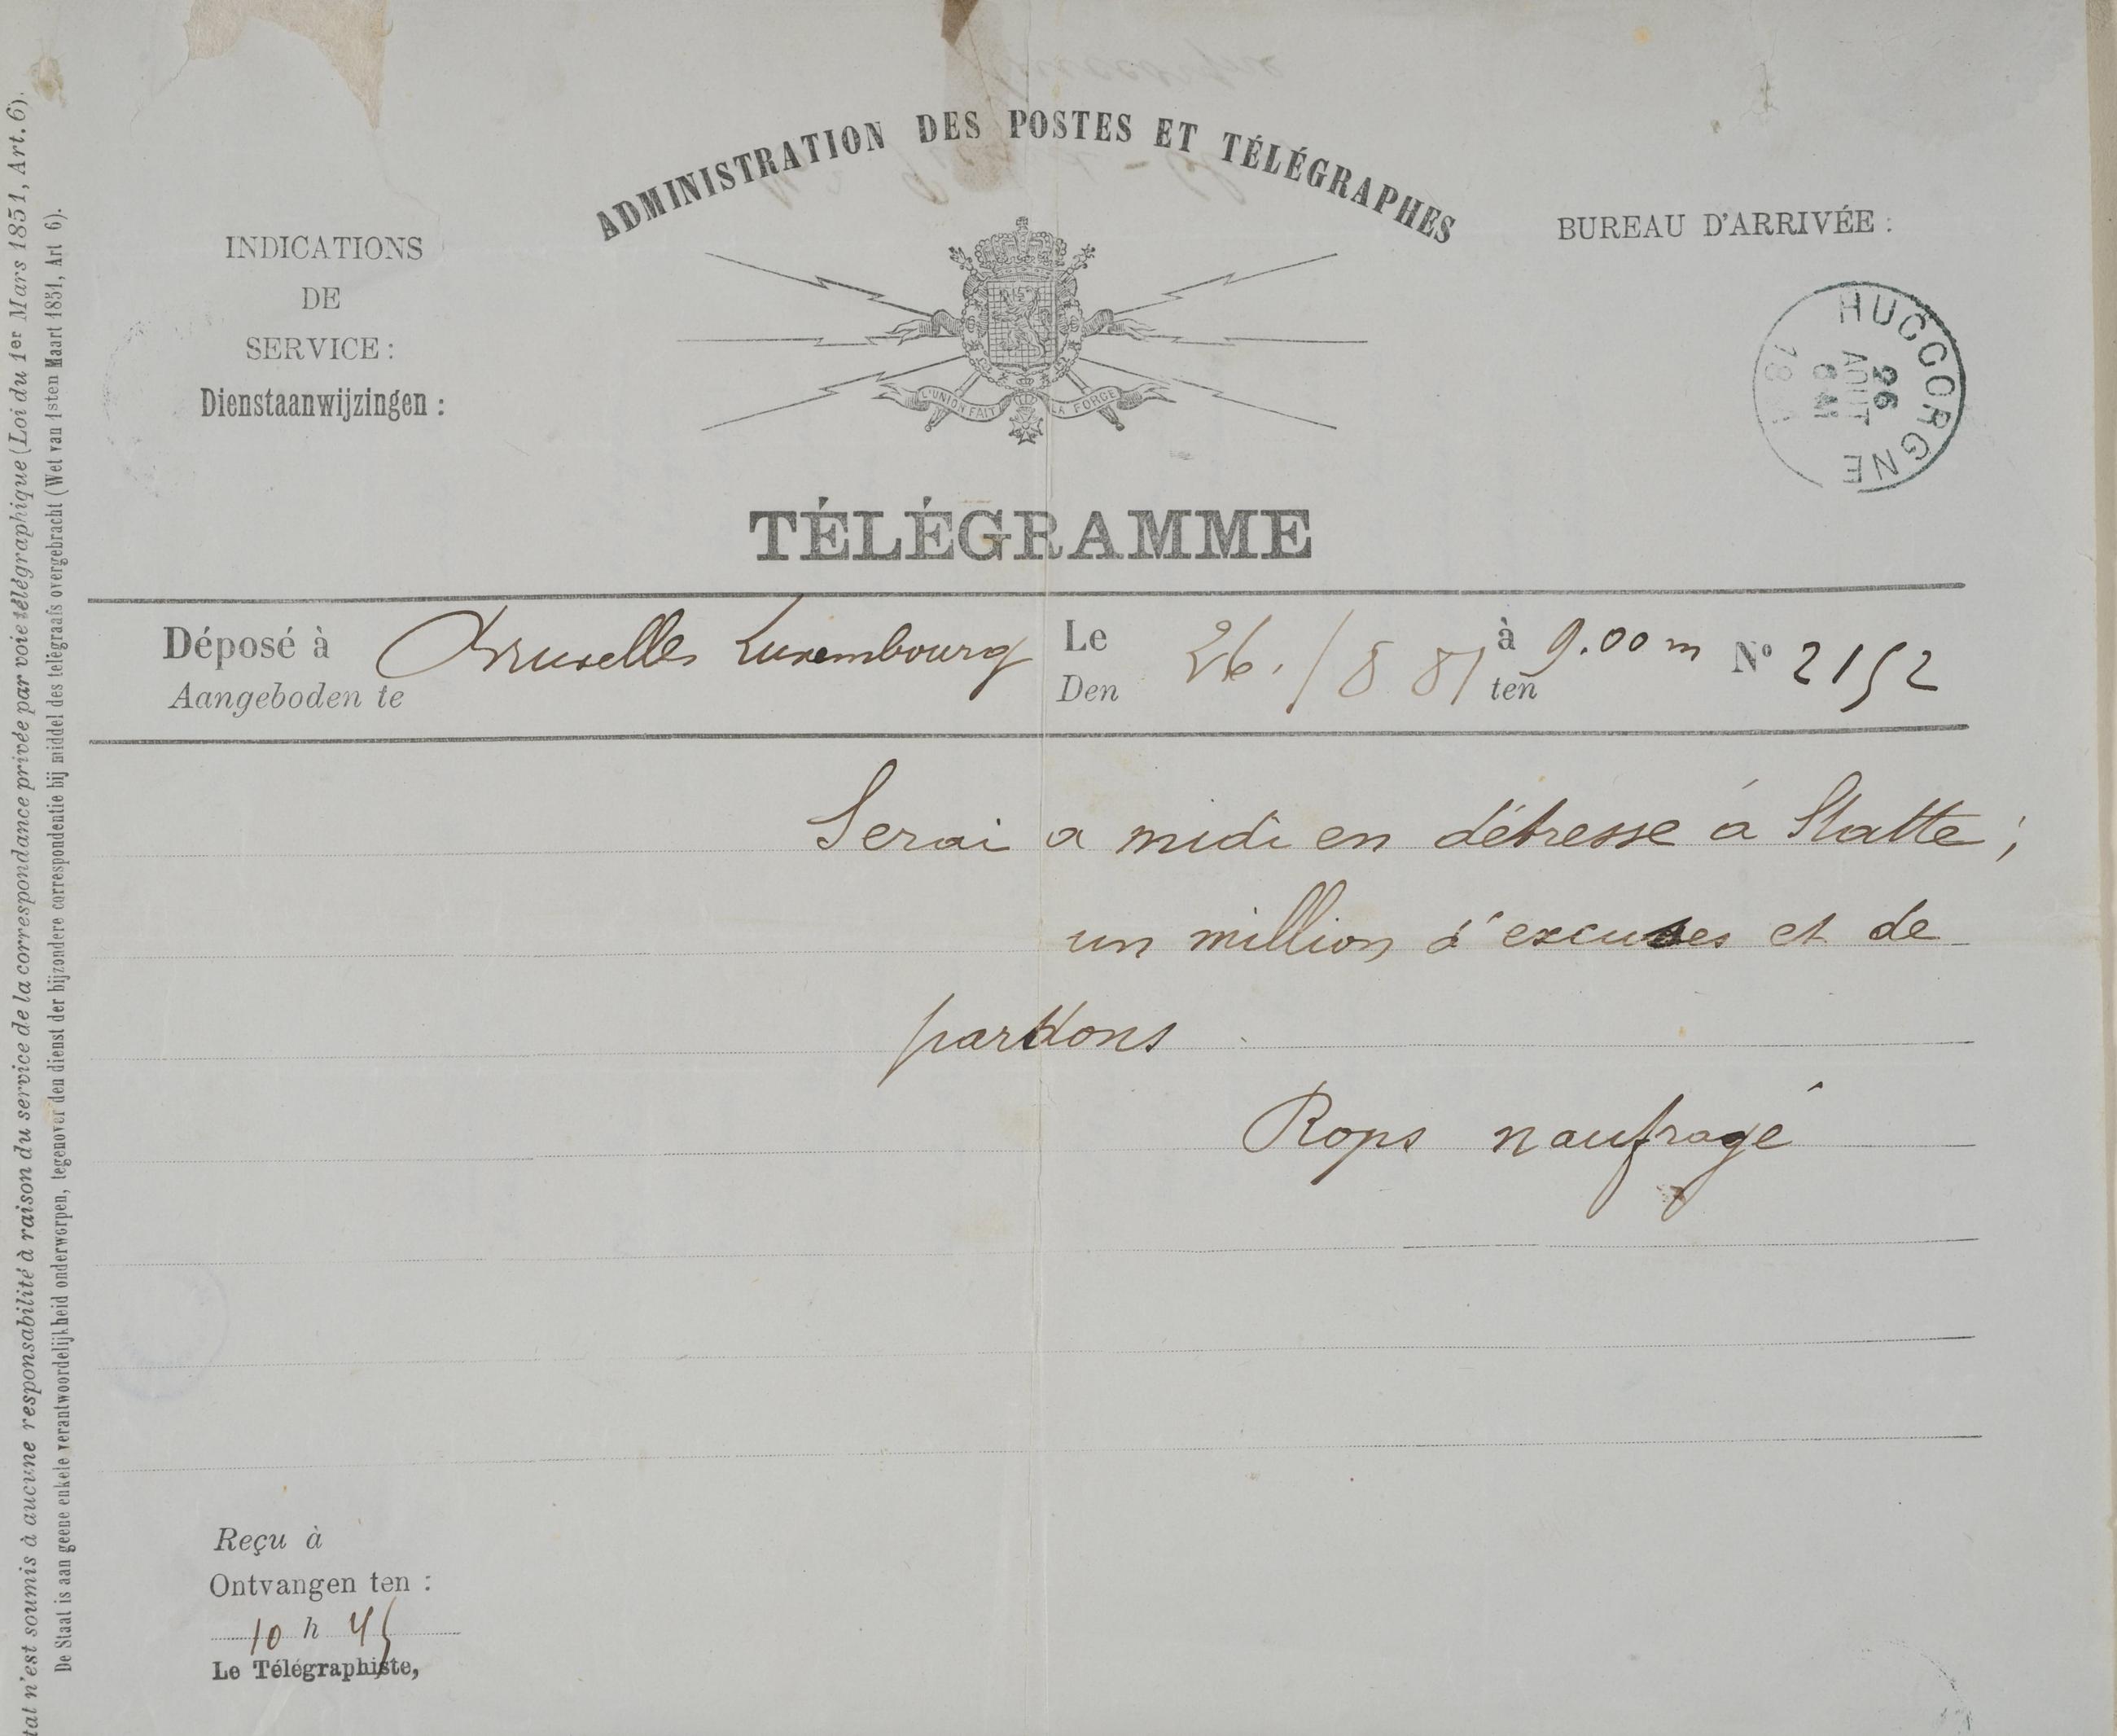 ADMINISTRATION DES POSTES ET TÉLÉGRAPHES
INDICATIONS
DE
SERVICE :
Dienstaanwijzingen :
L'UNION FAIT LA FORCE
BUREAU D'ARRIVÉE :
HUCCORGNE
26
AOUT
TÉLÉGRAMME
Déposé à Bruxelles Luxembourg Le 26./8 81 à 9.00 m N° 2152
Aangeboden te Den ten
Serai a midi en détresse à Statte ;
un million d'excuses et de
pardons
Rops naufragé
Reçu à
Ontvangen ten :
10 h 45
Le Télégraphiste,
tat n'est soumis à aucune responsabilité à raison du service de la correspondance privée par voie télégraphique (Loi du 1er Mars 1851, Art. 6).
De Staat is aan geene enkele verantwoordelijkheid onderworpen, tegenover den dienst der bijzondere correspondentie bij middel des telegraafs overgebracht (Wet van 1sten Maart 1851, Art 6).